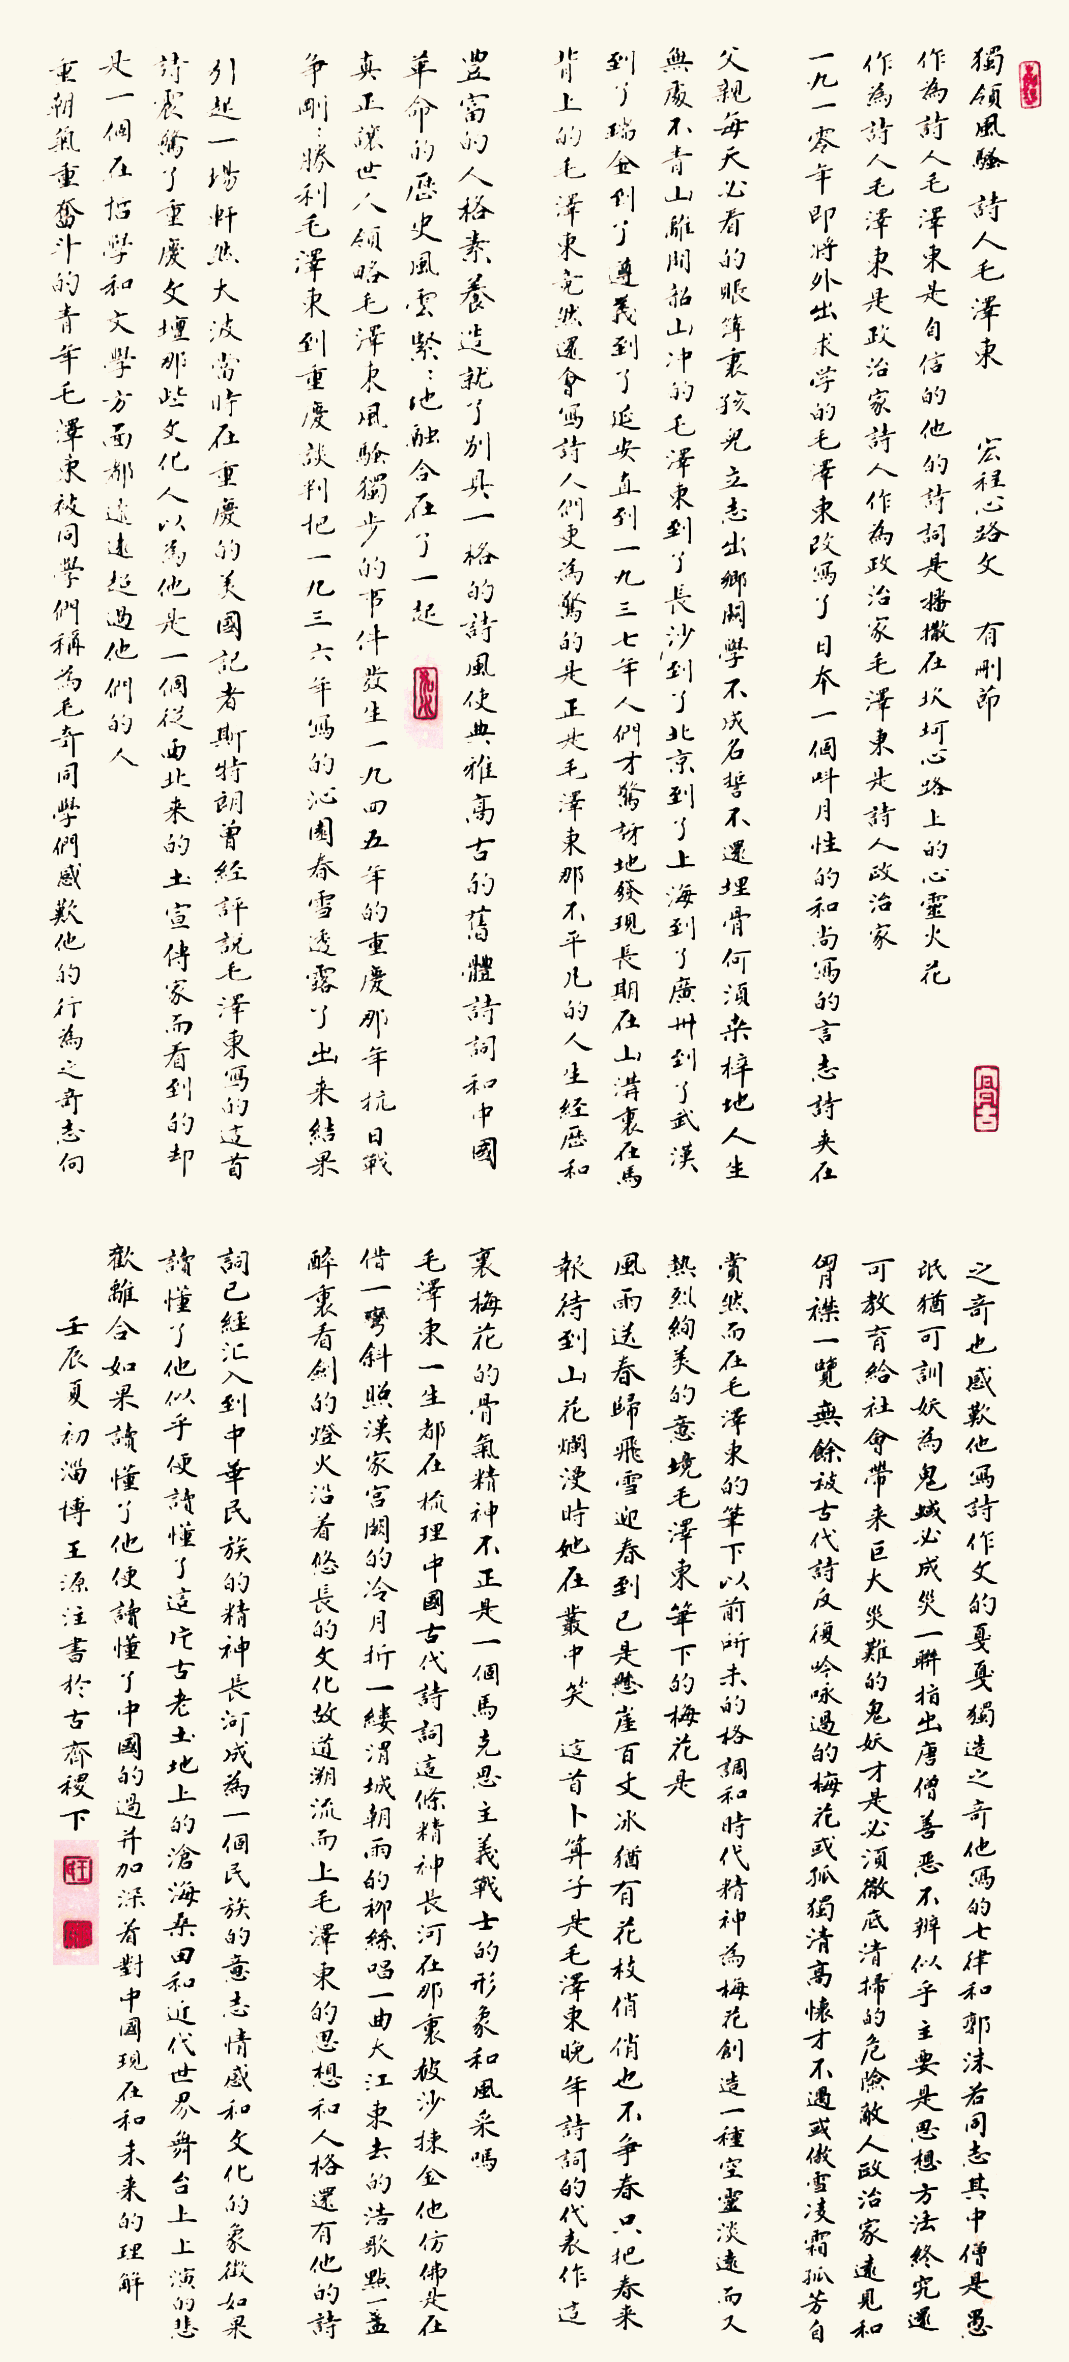 獨領風騷 詩人毛澤東 宏程心路文 有刪節
作為詩人毛澤東是自信的他的詩詞是播撒在坎坷心路上的心靈火花
作為詩人毛澤東是政治家詩人作為政治家毛澤東是詩人政治家
一九一零年即將外出求学的毛澤東改寫了日本一個叫月性的和尚寫的言志詩夾在
父親每天必看的賬簿裏孩兒立志出鄉關學不成名誓不還埋骨何須桑梓地人生
無處不青山離開韶山冲的毛澤東到了長沙到了北京到了上海到了廣州到了武漢
到了瑞金到了遵義到了延安直到一九三七年人們才驚訝地發現長期在山溝裏在馬
背上的毛澤東竟然還會寫詩人們更為驚的是正是毛澤東那不平凡的人生经歷和
豊富的人格素養造就了別具一格的詩風使典雅高古的舊體詩詞和中國
革命的歷史風雲緊緊地融合在了一起
真正讓世人領略毛澤東風騷獨步的事件發生一九四五年的重慶那年抗日戰
争剛剛勝利毛澤東到重慶談判把一九三六年寫的沁園春雪透露了出来結果
引起一場軒然大波當時在重慶的美國記者斯特朗曾經評說毛澤東寫的這首
詩震驚了重慶文壇那些文化人以為他是一個從西北来的土宣傳家而看到的却
是一個在哲學和文學方面都遠遠超過他們的人
重朝氣重奮斗的青年毛澤東被同學們稱為毛奇同學們感歎他的行為之奇志向
之奇也感歎他寫詩作文的戛戛獨造之奇他寫的七律和郭沫若同志其中僧是愚
氓猶可訓妖為鬼蜮必成災一聯指出唐僧善惡不辨似乎主要是思想方法終究還
可教育給社會帶来巨大災難的鬼妖才是必須徹底清掃的危險敵人政治家遠見和
胃襟一覽無餘被古代詩反復吟咏過的梅花或孤獨清高懷才不遇或傲雪凌霜孤芳自
賞然而在毛澤東的筆下以前所未的格調和時代精神為梅花創造一種空靈淡遠而又
熱烈絢美的意境毛澤東筆下的梅花是
風雨送春歸飛雪迎春到已是懸崖百丈冰猶有花枝俏俏也不争春只把春来
報待到山花爛漫時她在叢中笑 這首卜算子是毛澤東晚年詩詞的代表作這
裏梅花的骨氣精神不正是一個馬克思主義戰士的形象和風采嗎
毛澤東一生都在梳理中國古代詩詞這條精神長河在那裏披沙揀金他仿佛是在
借一彎斜照漢家宮闕的冷月折一縷渭城朝雨的柳絲唱一曲大江東去的浩歌點一盞
醉裏看劍的燈火沿着悠長的文化故道溯流而上毛澤東的思想和人格還有他的詩
詞已經汇入到中華民族的精神長河成為一個民族的意志情感和文化的象徵如果
讀懂了他似乎便讀懂了這片古老土地上的滄海桑田和近代世界舞台上上演的悲
歡離合如果讀懂了他便讀懂了中國的過并加深着對中國現在和未来的理解
壬辰夏初淄博王源注書於古齊稷下